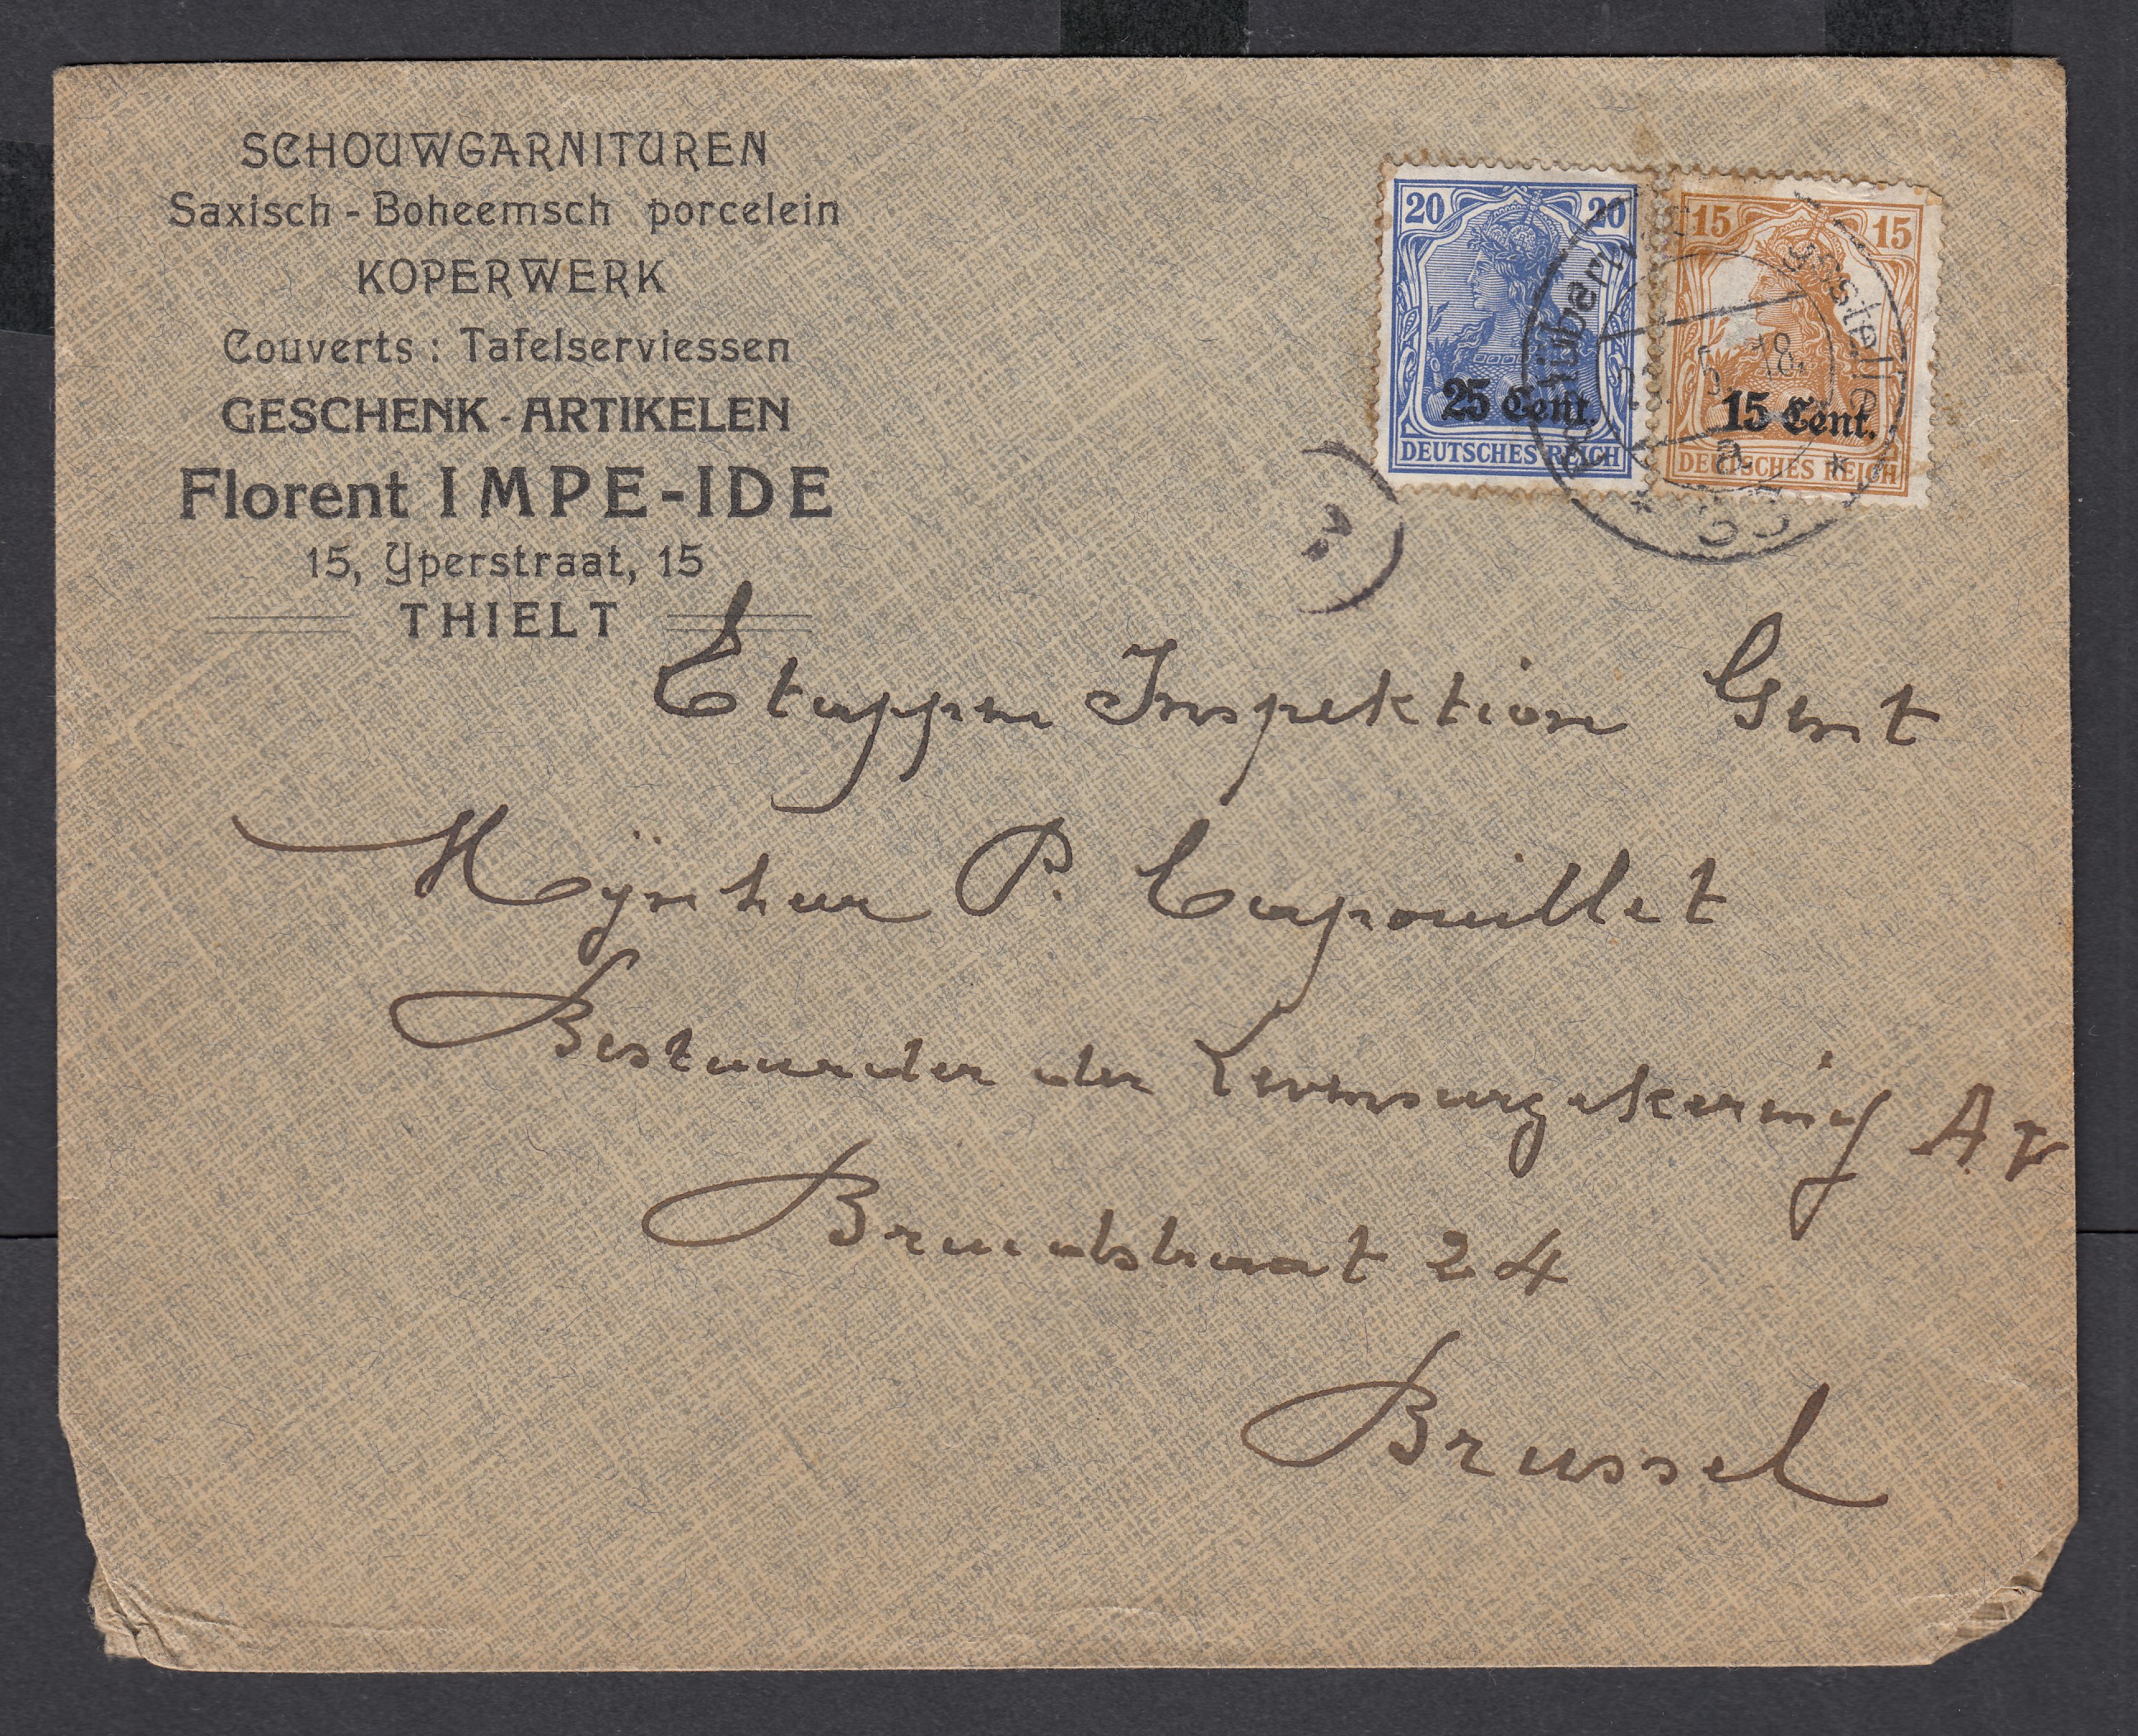 SCHOUWGARNITUREN
Saxisch - Boheemsch porcelein
KOPERWERK
Couverts : Tafelserviessen
GESCHENK - ARTIKELEN
Florent IMPE-IDE
15, Yperstraat, 15
THIELT
20 20
25 Cent.
DEUTSCHES REICH
15 15
15 Cent.
DEUTSCHES REICH
5. 18.
a
* *
Etappen Inspektion Gent
Mynheer P. Capouillet
Bestuurder der Levensverzekering
Bruidstraat 24
Brussel